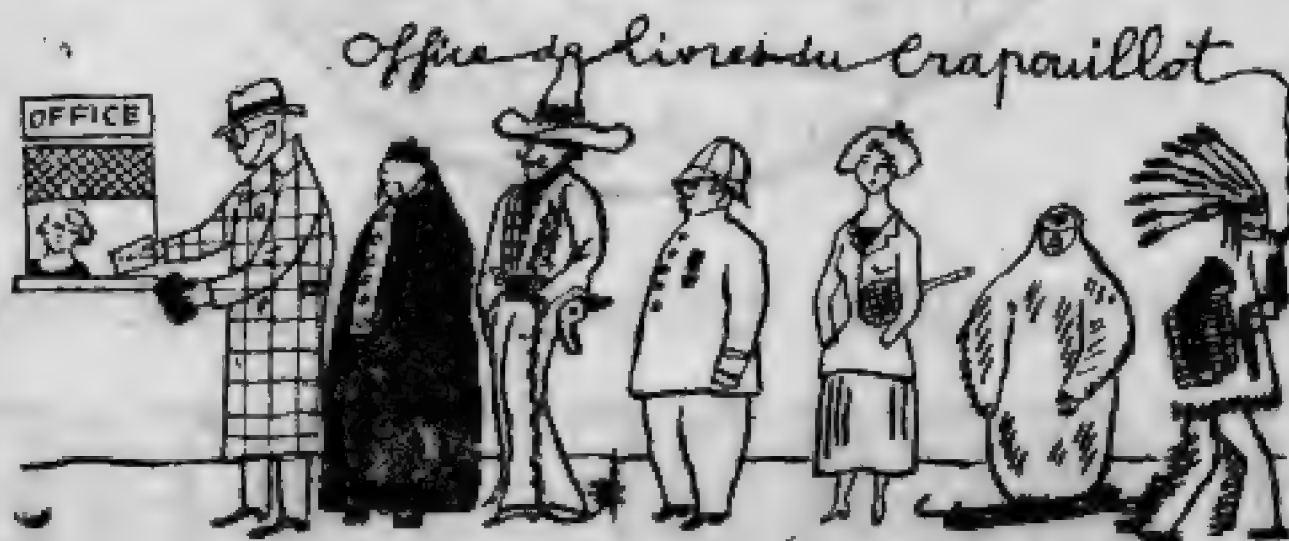 Office de livres du Crapouillot
OFFICE